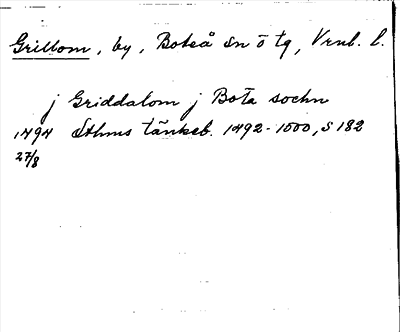 Grillom, by, Boteå sn ö tg, Vrnl. l.
j Griddalom j Bota sochn
1494 Sthms tänkeb. 1492-1500, s 182
27/8